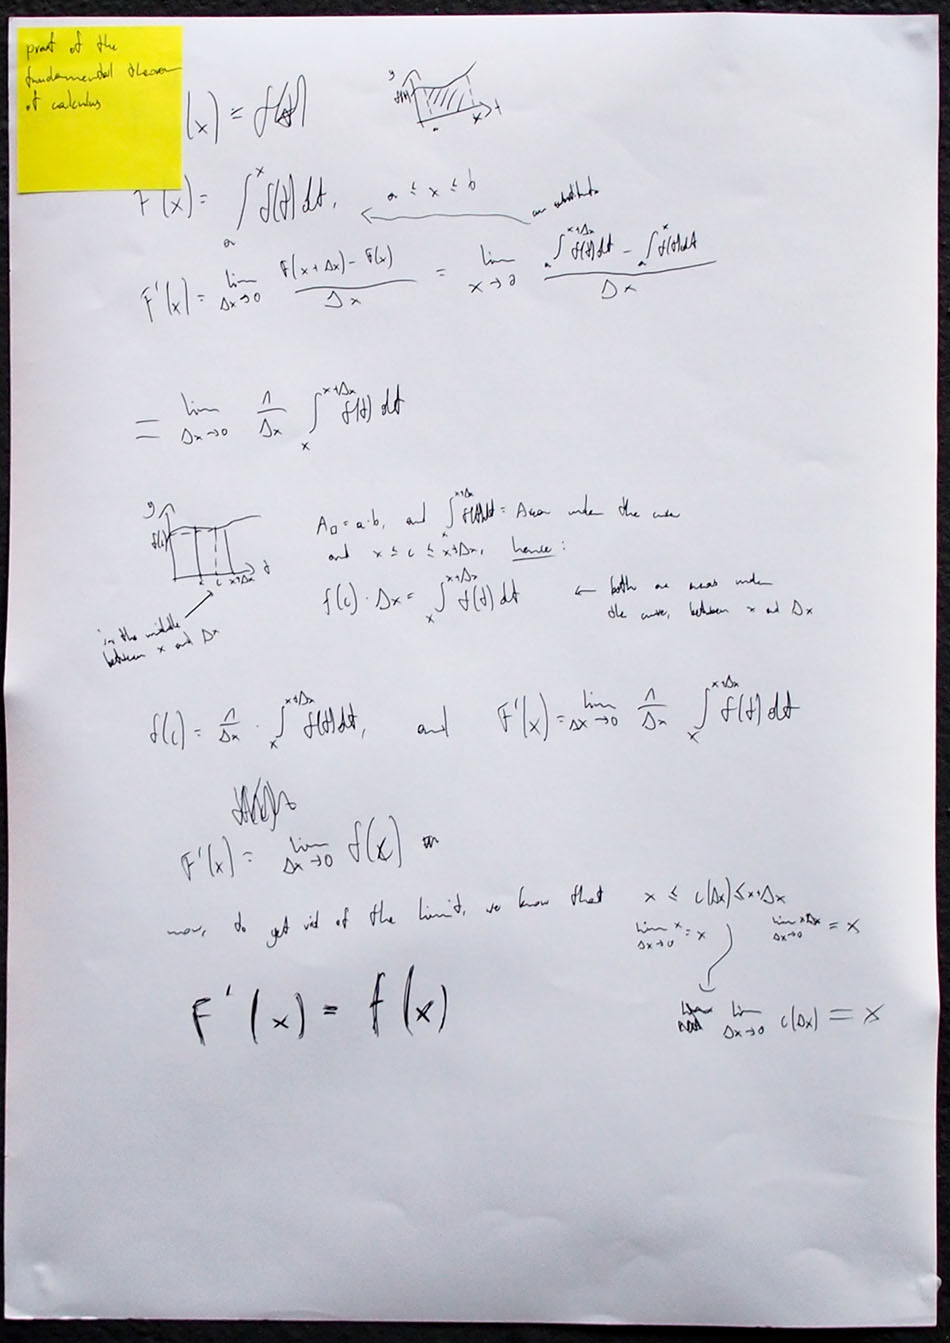 proof of the
fundamental theorem
of calculus
(x) = f(t)
y
f(t)
a x t
F(x) = ∫ₐˣ f(t) dt, a ≤ x ≤ b
can substitute
F'(x) = lim Δx→0 (F(x + Δx) - F(x)) / Δx = lim x→0 (∫ₐˣ⁺ᐃˣ f(t) dt - ∫ₐˣ f(t) dt) / Δx
= lim Δx→0 1/Δx ∫ₓˣ⁺ᐃˣ f(t) dt
y
f(c)
x c x+Δx t
in the middle
between x and Δx
A▯ = a·b, and ∫ₓˣ⁺ᐃˣ f(t) dt = Area under the curve
and x ≤ c ≤ x+Δx, hence:
f(c) · Δx = ∫ₓˣ⁺ᐃˣ f(t) dt ← both are areas under
the curve, between x and Δx
f(c) = 1/Δx · ∫ₓˣ⁺ᐃˣ f(t) dt, and F'(x) = lim Δx→0 1/Δx ∫ₓˣ⁺ᐃˣ f(t) dt
F'(x) = lim Δx→0 f(x)
now, to get rid of the limit, we know that x ≤ c(Δx) ≤ x+Δx
lim Δx→0 x = x lim Δx→0 x+Δx = x
F'(x) = f(x)
lim Δx→0 c(Δx) = x